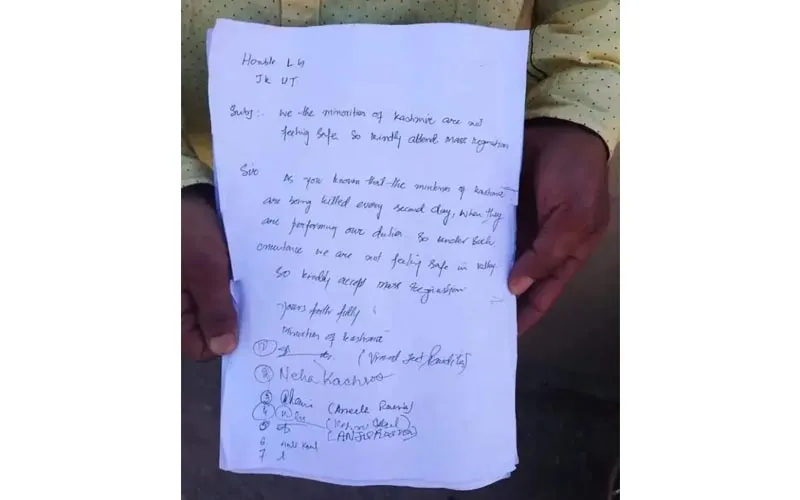 Honble LG
JK UT
Subj:- We the minorities of Kashmir are not
feeling safe. So kindly attend mass regination
Sir
As you known that the minorities of Kashmir
are being killed every second day, when they
are performing our duties. So under such
cncumtance we are not feeling safe in valley
So kindly accept mass
yours faith fully
Minorities of Kashmir
1
2 Neha Kachroo
3 (Aneeta Raina)
4
5
6 Kaul
7